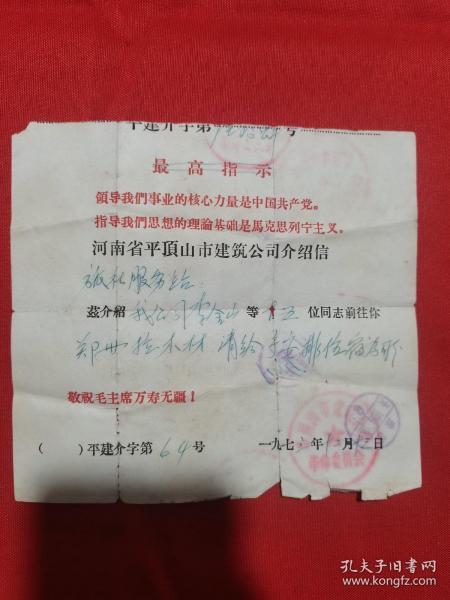 平建介字第 号
最高指示
領导我們事业的核心力量是中国共产党。
指导我們思想的理論基础是馬克思列宁主义。
河南省平頂山市建筑公司介绍信
旅社服务站：
茲介紹 我公司李金山 等 位同志前往你
郑州拉木材 请给予安排住宿为盼
敬祝毛主席万寿无疆！
( )平建介字第 64 号 一九七 年 月 日
孔夫子旧书网
www.kongfz.com